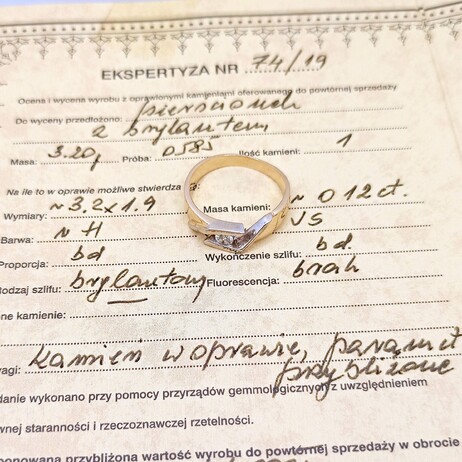 EKSPERTYZA NR 74/19
Ocena i wycena wyrobu z oprawionymi kamieniami oferowanego do powtórnej sprzedaży
Do wyceny przedłożono: pierścionek
z brylantem
Masa: 3.20g Próba: 0585 Ilość kamieni: 1
Na ile to w oprawie możliwe stwierdza
Wymiary: ~3,2x1.9 Masa kamieni: ~ 0 12 ct.
Barwa: ~ H VS
Proporcja: bd Wykończenie szlifu: bd.
odzaj szlifu: brylantowy Fluorescencja: brak
ne kamienie:
wagi: kamień w oprawie, paramet
przybliżone
danie wykonano przy pomocy przyrządów gemmologicznych z uwzględnieniem
wnej staranności i rzeczoznawczej rzetelności.
ponowana przybliżona wartość wyrobu do powtórnej sprzedaży w obrocie